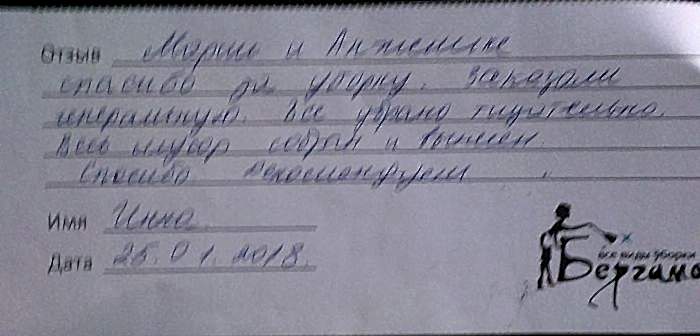 Отзыв Марии и Анжелике
спасибо за уборку. Заказали
генеральную. Все убрано тщательно.
Весь мусор собран и вынесен.
Спасибо Рекомендуем
Имя Инна
Дата 25.01.2018.
все виды уборки
Бергамо